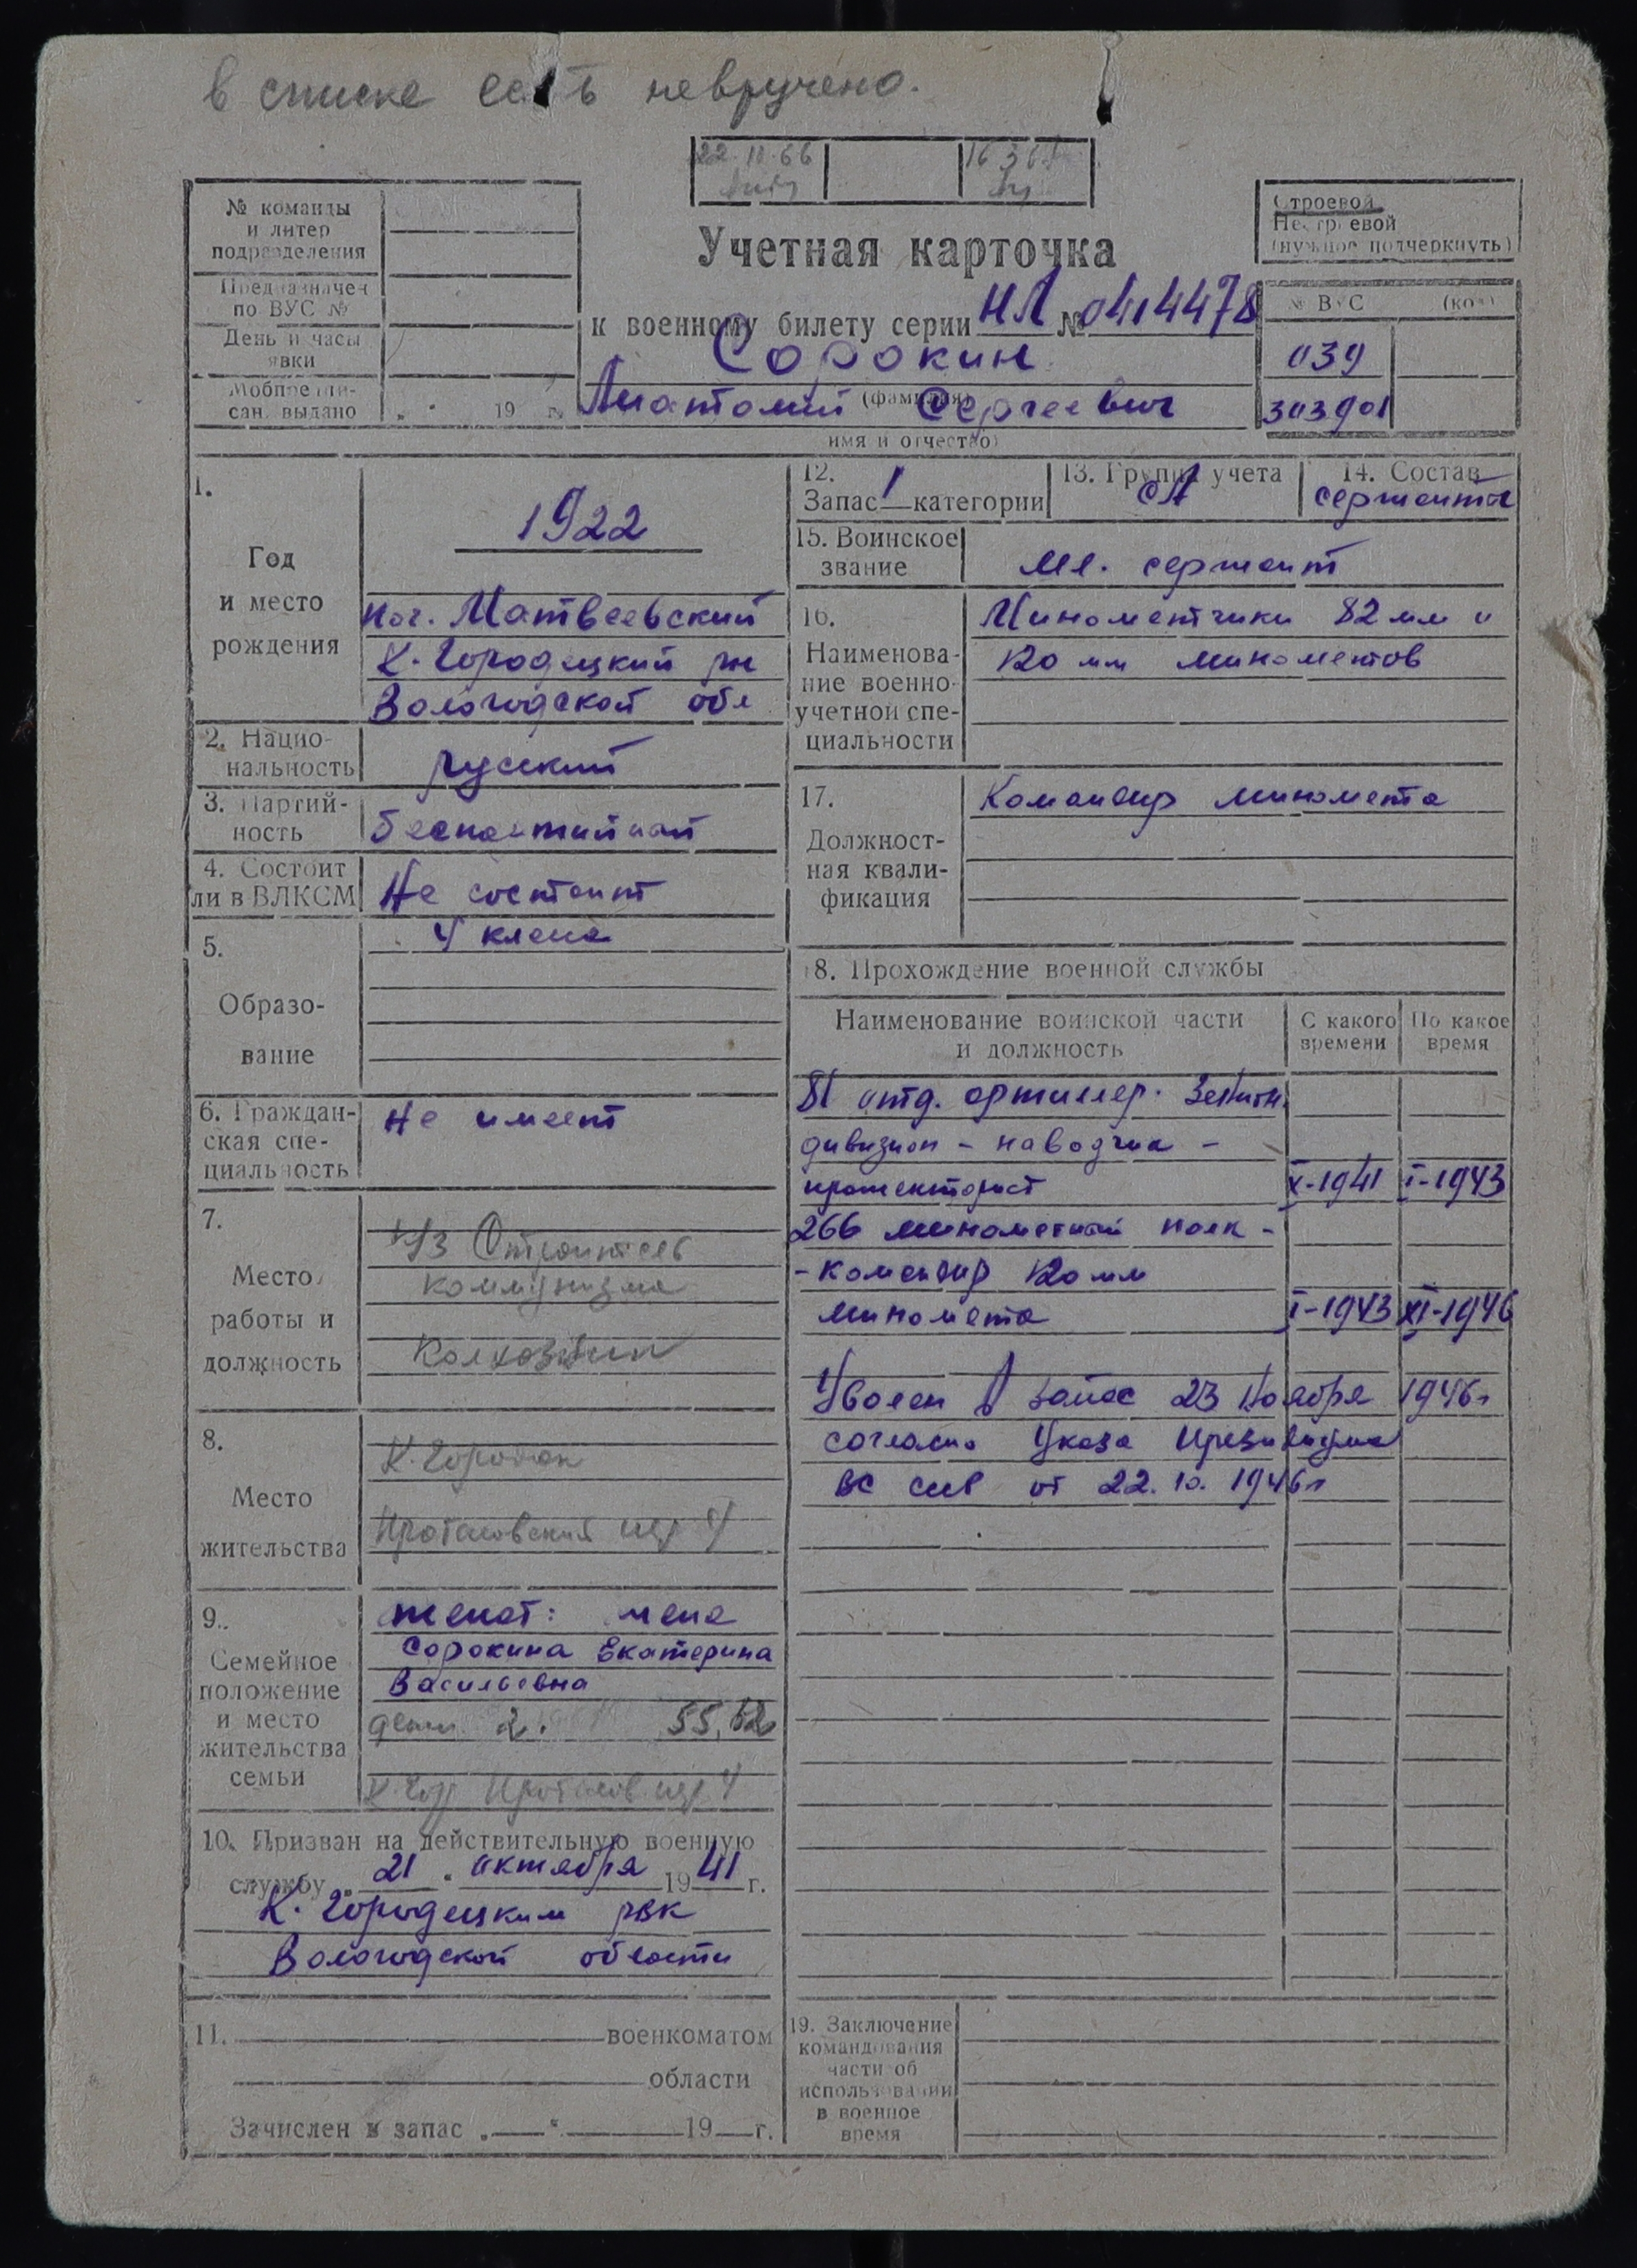 в списке есть невручено.
22.10.66
16 3 6
№ команды
и литер
подразделения
Предназначен
по ВУС №
День и часы
явки
Мобпредпи-
сан. выдано „ " 19 г.
Строевой
Нестроевой
(нужное подчеркнуть)
Учетная карточка
к военному билету серии НЛ № 0414478
Сорокин
(фамилия)
Анатолий Сергеевич
имя и отчество)
№ ВУС (код)
039
303901
1.
Год
и место
рождения
1922
пос. Матвеевский
К. Городецкий рн
Вологодской обл
2. Нацио-
нальность
русский
3. Партий-
ность
беспартийный
4. Состоит
ли в ВЛКСМ
Не состоит
5.
Образо-
вание
4 класса
6. Граждан-
ская спе-
циальность
Не имеет
7.
Место
работы и
должность
к/з Строитель
коммунизма
Колхозник
8.
Место
жительства
К. Городок
пер 4
9.
Семейное
положение
и место
жительства
семьи
женат: жена
Сорокина Екатерина
Васильевна
дети 2. 55, 52
К. Гор пер 4
10. Призван на действительную военную
службу „ 21 " октября 1941 г.
К. Городецким рвк
Вологодской области
11. военкоматом
области
Зачислен в запас „ " 19 г.
12.
Запас 1 категории
13. Группа учета
СА
14. Состав
сержанты
15. Воинское
звание
мл. сержант
16.
Наименова-
ние военно-
учетной спе-
циальности
Минометчики 82 мм и
120 мм минометов
17.
Должност-
ная квали-
фикация
Командир миномета
18. Прохождение военной службы
Наименование воинской части
и должность
С какого
времени
По какое
время
81 отд. артиллер. Зенитн.
дивизион – наводчик –
прожекторист X-1941 I-1943
266 минометный полк –
– командир 120 мм
миномета I-1943 XI-1946
Уволен в запас 23 Ноября 1946г
согласно Указа Президиума
ВС ссср от 22. 10. 1946г
19. Заключение
командования
части об
использовании
в военное
время